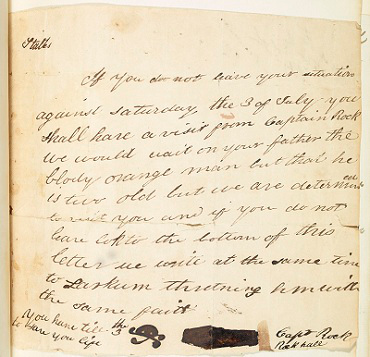 Stalks
If you do not leave your situation
against saturday, the 3 of July you
shall have a visit from Captain Rock
We would wait on your father the
blody orange man but that he
is two old but we are determined
to visit you and if you do not
leave to the bottom of this
letter we write at the same time
to Larkum thretning him with
the same
You have till the 3
to save you life
Capt Rock
Rockhall